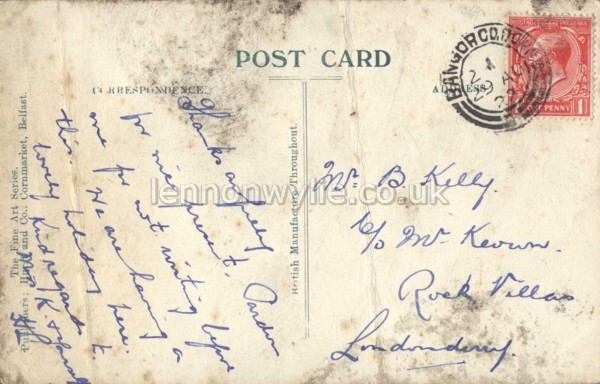 POST CARD
CORRESPONDENCE.
ADDRESS
BANGOR CO. DOWN
29 AU
22
ONE PENNY
1
Thanks awfully
for nice present. Pardon
me for not writing before
this. We are having a
lovely holiday here.
Kind regards to
Mr B. Kelly.
C/o Mc Keown.
Rock Villas
Londonderry.
The Fine Art Series.
and Co., Cornmarket, Belfast.
British Manufacture Throughout.
lennonwylie.co.uk